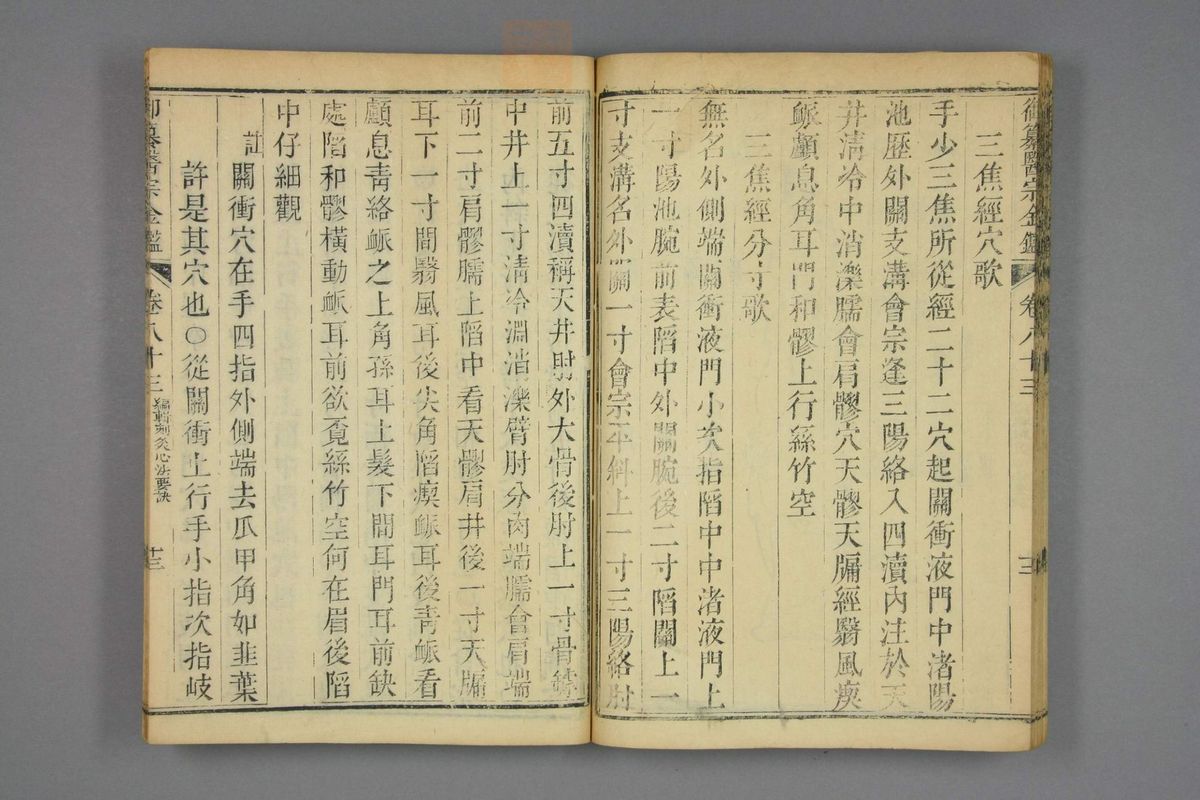 御纂醫宗金鑑 卷八十三
三焦經穴歌
手少三焦所從經二十二穴起關衝液門中渚陽
池歷外關支溝會宗逢三陽絡入四瀆內注於天
井淸冷中消濼臑會肩髎穴天髎天牖經翳風瘈
䘑顱息角耳門和髎上行絲竹空
三焦經分寸歌
無名外側端關衝液門小次指陷中中渚液門上
一寸陽池腕前表陷中外關腕後二寸陷關上一
寸支溝名外關一寸會宗平斜上一寸三陽絡肘
前五寸四瀆稱天井肘外大骨後肘上一寸骨罅
中井上一寸淸冷淵消濼臂肘分肉端臑會肩端
前二寸肩髎臑上陷中看天髎肩井後一寸天牖
耳下一寸間翳風耳後尖角陷瘈䘑耳後靑䘑看
顱息靑絡䘑之上角孫耳上髮下間耳門耳前缺
處陷和髎橫動䘑耳前欲覔絲竹空何在眉後陷
中仔細觀
註關衝穴在手四指外側端去爪甲角如韭葉
許是其穴也〇從關衝上行手小指次指岐
御纂醫宗金鑑 卷八十三 編輯刺灸心法要訣 十三